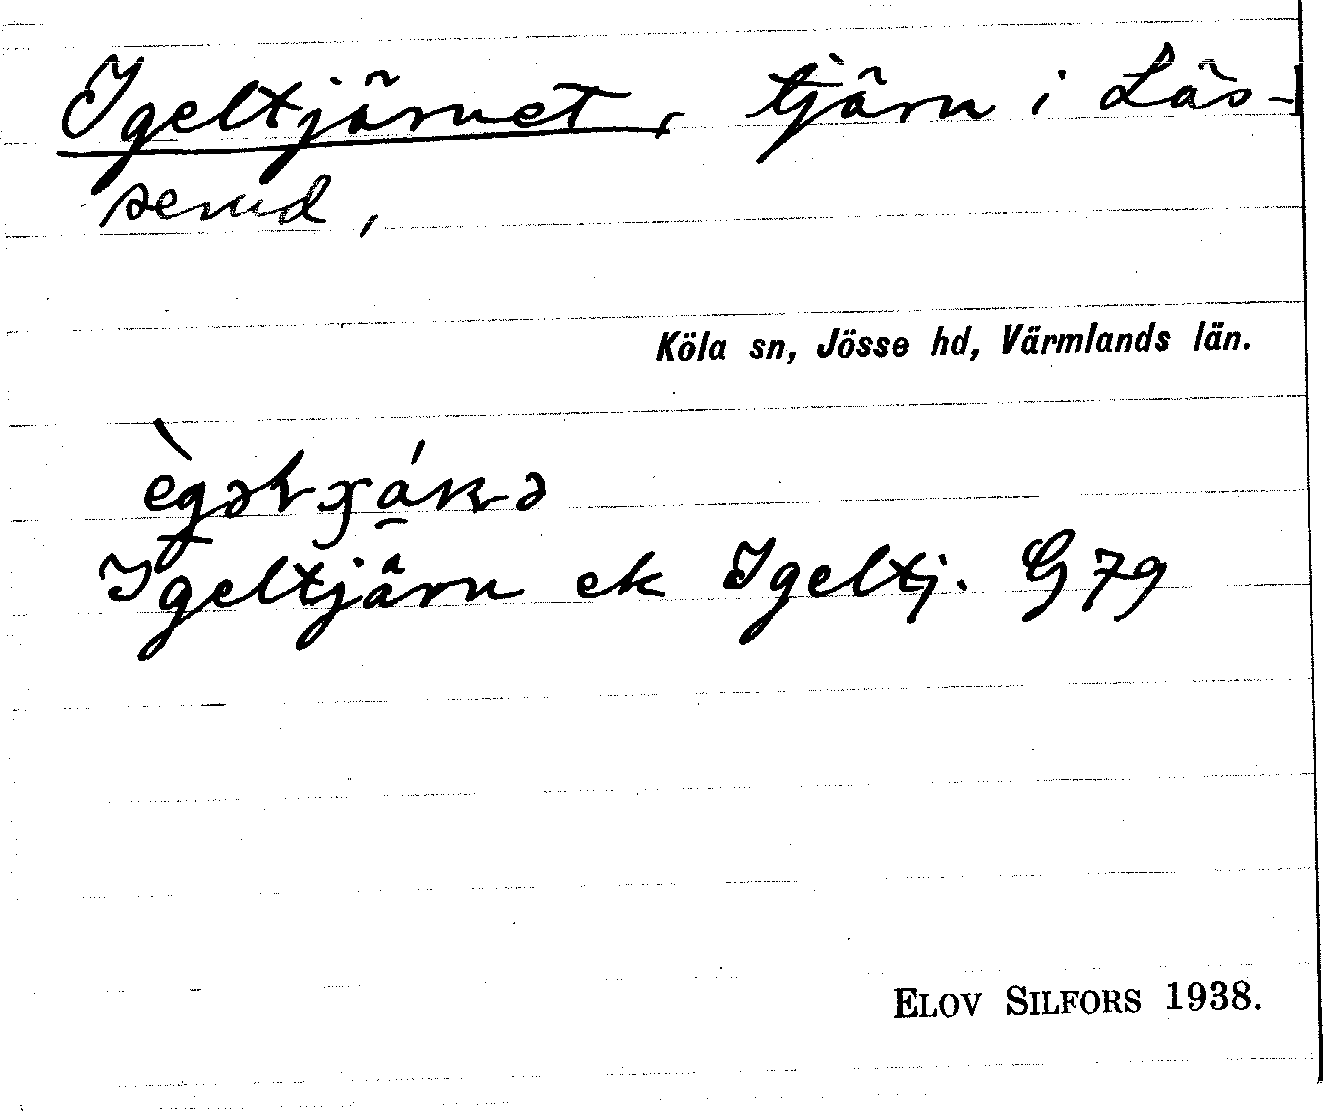 Igeltjärnet, tjärn i Läs-
serud,
Köla sn, Jösse hd, Värmlands län.
Igeltjärn ek Igeltj. G 79
ELOV SILFORS 1938.